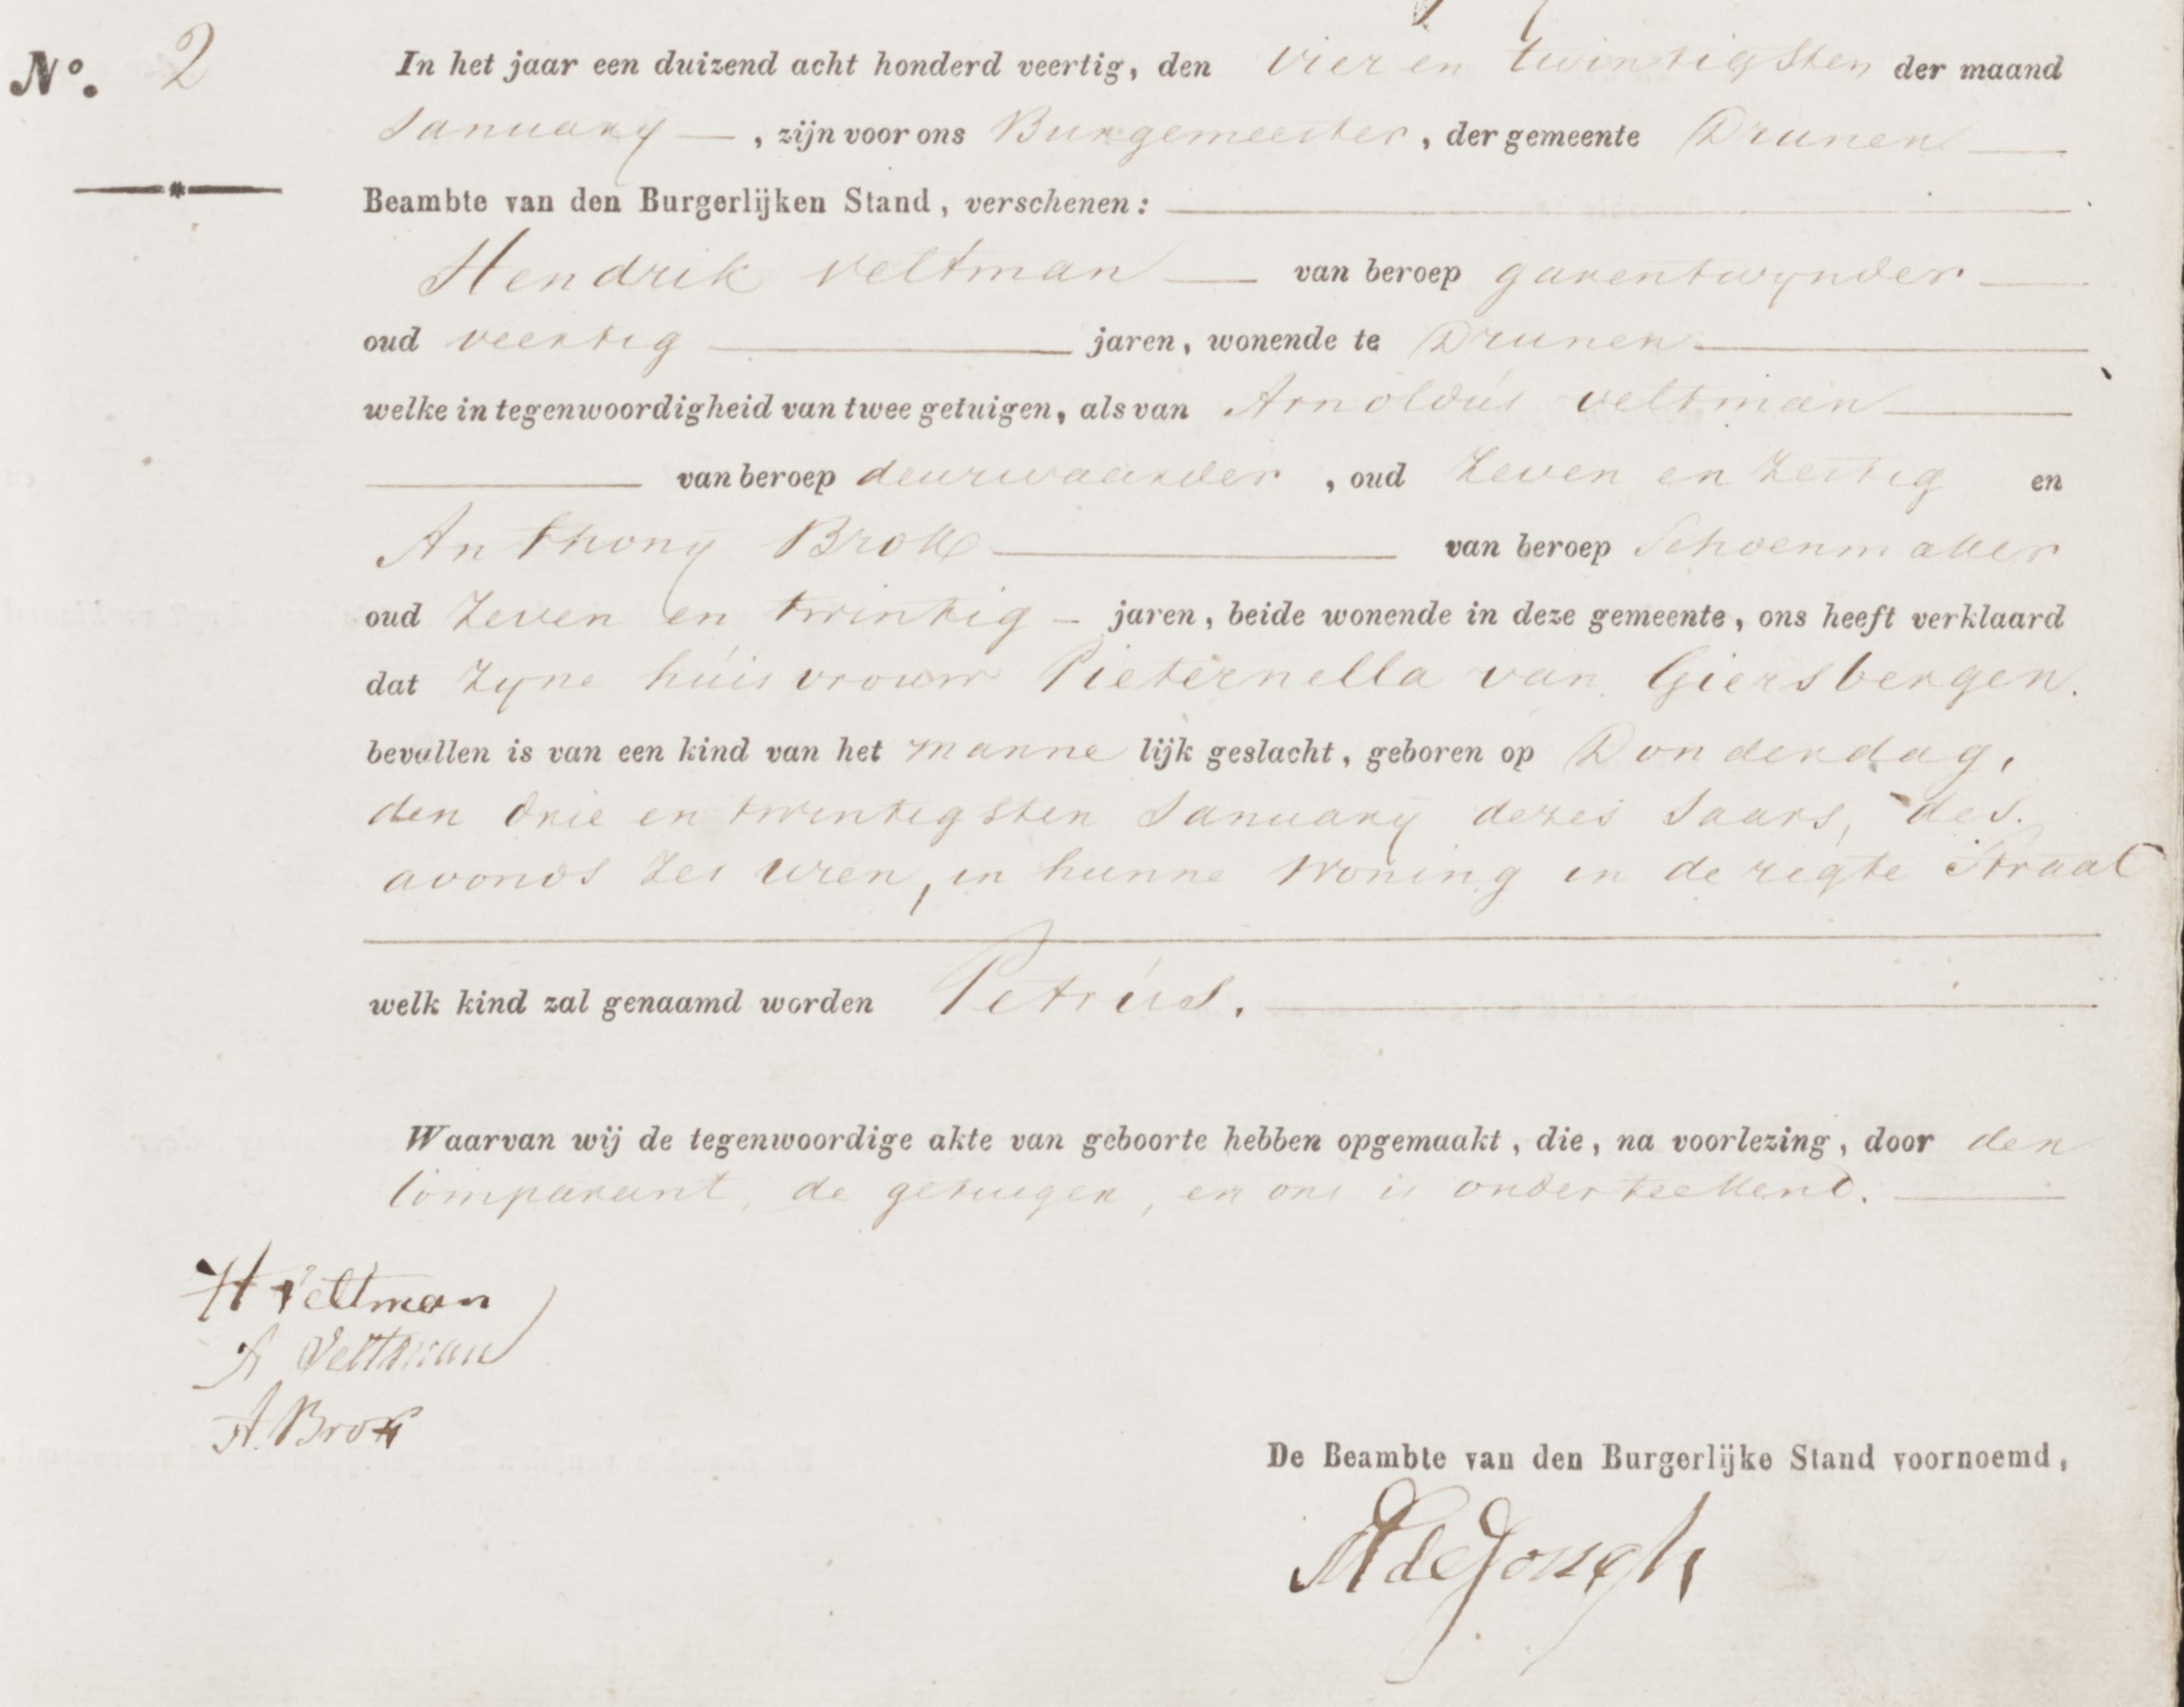 No. 2
In het jaar een duizend acht honderd veertig, den vier en twintigsten der maand
January — , zijn voor ons Burgemeester , der gemeente Drunen —
Beambte van den Burgerlijken Stand, verschenen:
Hendrik veltman — van beroep garentwynder —
oud veertig — jaren, wonende te Drunen —
welke in tegenwoordigheid van twee getuigen, als van Arnoldus veltman —
— van beroep deurwaarder , oud Zeven en Zestig en
Anthony Brok — van beroep Schoenmaker
oud Zeven en twintig — jaren, beide wonende in deze gemeente, ons heeft verklaard
dat Zyne huisvrouw Pieternella van Giersbergen.
bevallen is van een kind van het manne lijk geslacht, geboren op Donderdag,
den drie en twintigsten January dezes Jaars, des.
avonds Zes uren, in hunne woning in de regte Straat
welk kind zal genaamd worden Petrus. —
Waarvan wij de tegenwoordige akte van geboorte hebben opgemaakt, die, na voorlezing, door den
Comparant, de getuigen, en ons is onderteekend. —
H Veltman
A Veltman
A. Brok
De Beambte van den Burgerlijke Stand voornoemd,